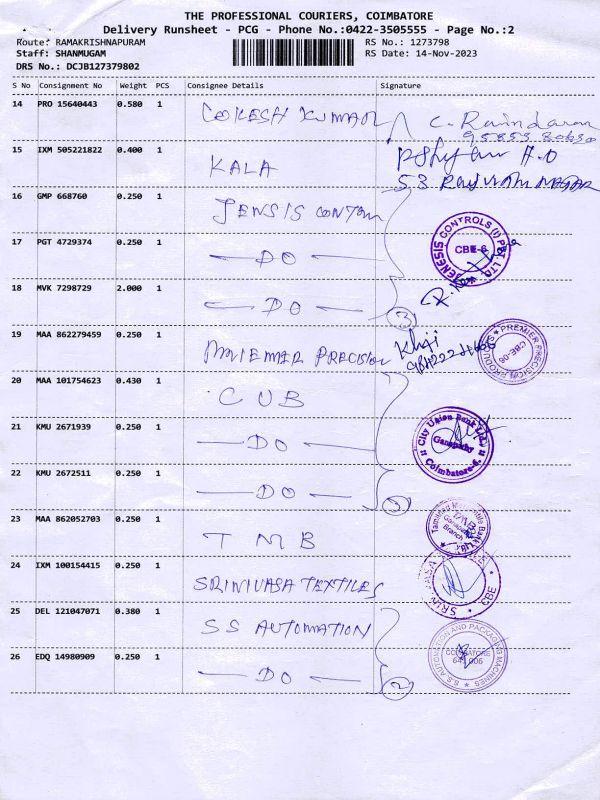 THE PROFESSIONAL COURIERS, COIMBATORE
Delivery Runsheet - PCG - Phone No.:0422-3505555 - Page No.:2
Route: RAMAKRISHNAPURAM RS No.: 1273798
Staff: SHANMUGAM RS Date: 14-Nov-2023
DRS No.: DCJB127379802
S No Consignment No Weight PCS Consignee Details Signature
14 PRO 15640443 0.580 1 LOKESH KUMAR C. Ravindaran
15 IXM 505221822 0.400 1 KALA
16 GMP 668760 0.250 1 JENSIS CONTAN
GENESIS CONTROLS (I) PVT. LTD. CBE-6
17 PGT 4729374 0.250 1 — DO —
18 MVK 7298729 2.000 1 — DO — 3
19 MAA 862279459 0.250 1 PRIEMER PRECISION
PREMIER PRECISION PRODUCTS CBE-06
20 MAA 101754623 0.430 1 CUB
City Union Bank Ltd. Ganapathy Coimbatore-6.
21 KMU 2671939 0.250 1 — DO —
22 KMU 2672511 0.250 1 — DO — 3
23 MAA 862052703 0.250 1 TMB
Tamilnad Mercantile Bank TMB Ganapathy Branch
24 IXM 100154415 0.250 1 SRINIVASA TEXTILES
CBE
25 DEL 121047071 0.380 1 SS AUTOMATION
S.S. AUTOMATION AND PACKAGING MACHINES COIMBATORE 641 006
26 EDQ 14980909 0.250 1 — DO — 2